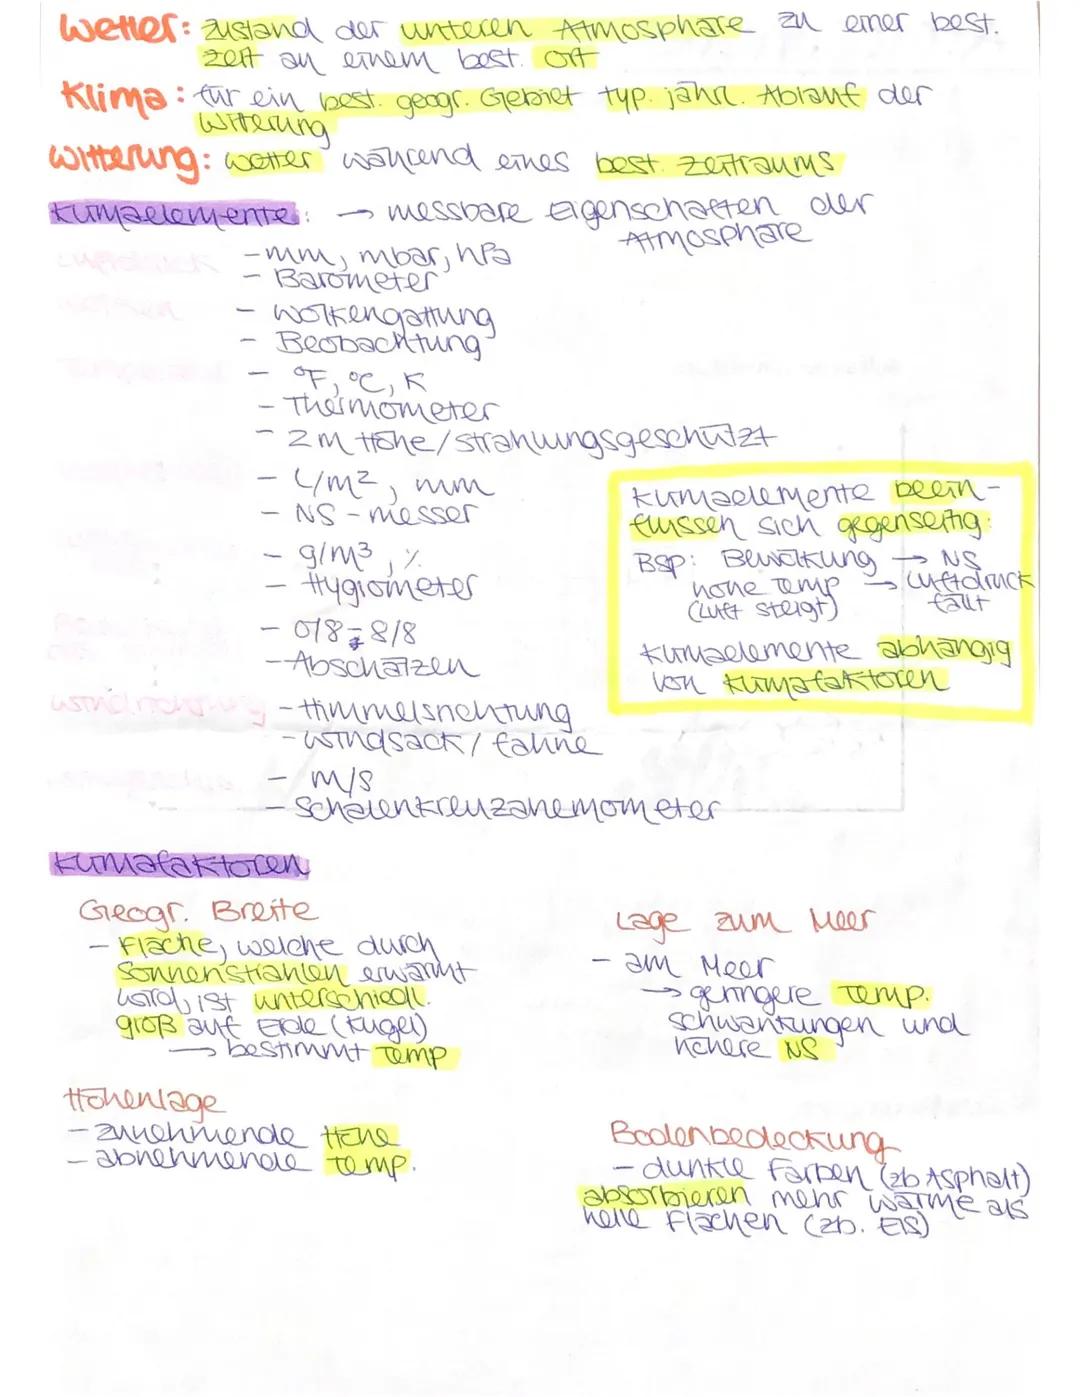 Wetter: Zustand der unteren Atmosphäre zu einer best.
Zeit an einem best. Ort
Klima: für ein best. geogr. Gebiet typ. jährl. Ablauf der
Witterung
Witterung: Wetter während eines best. Zeitraums
Klimaelemente: → messbare Eigenschaften der
Atmosphäre
Luftdruck - mm, mbar, hPa
- Barometer
Wolken - Wolkengattung
- Beobachtung
Temperatur - °F, °C, K
- Thermometer
- 2m Höhe/strahlungsgeschützt
- L/m², mm
- NS-messer
- g/m³, %
- Hygrometer
- 0/8-8/8
- Abschätzen
Windrichtung - Himmelsrichtung
- Windsack/fahne
- m/s
- Schalenkreuzanemometer
Klimaelemente beein-
flussen sich gegenseitig:
Bsp: Bewölkung → NS
hohe Temp → Luftdruck
(Luft steigt) fällt
Klimaelemente abhängig
von Klimafaktoren
Klimafaktoren
Geogr. Breite
- Fläche, welche durch
Sonnenstrahlen erwärmt
wird, ist unterschiedl.
groß auf Erde (Kugel)
→ bestimmt Temp
Höhenlage
- zunehmende Höhe
- abnehmende Temp.
Lage zum Meer
- am Meer
→ geringere Temp.
schwankungen und
höhere NS
Bodenbedeckung
- dunkle Farben (zb Asphalt)
absorbieren mehr Wärme als
helle Flächen (zb. Eis)